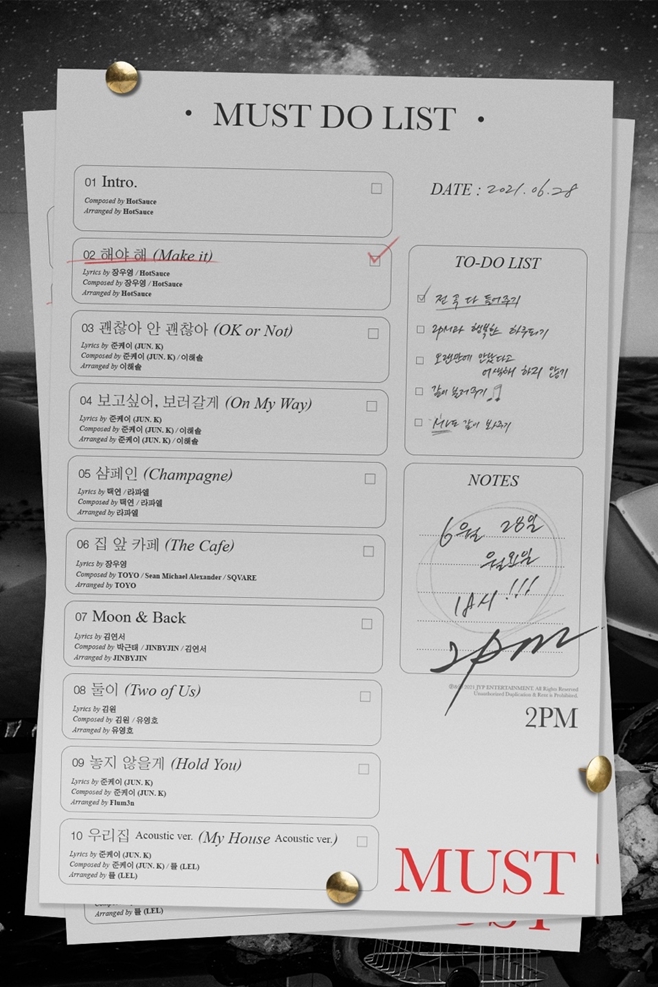 • MUST DO LIST •
01 Intro.
Composed by HotSauce
Arranged by HotSauce
02 해야 해 (Make it)
Lyrics by 장우영 / HotSauce
Composed by 장우영 / HotSauce
Arranged by HotSauce
03 괜찮아 안 괜찮아 (OK or Not)
Lyrics by 준케이 (JUN. K)
Composed by 준케이 (JUN. K) / 이해솔
Arranged by 이해솔
04 보고싶어, 보러갈게 (On My Way)
Lyrics by 준케이 (JUN. K)
Composed by 준케이 (JUN. K) / 이해솔
Arranged by 준케이 (JUN. K) / 이해솔
05 샴페인 (Champagne)
Lyrics by 택연 / 라파엘
Composed by 택연 / 라파엘
Arranged by 라파엘
06 집 앞 카페 (The Cafe)
Lyrics by 장우영
Composed by TOYO / Sean Michael Alexander / SQVARE
Arranged by TOYO
07 Moon & Back
Lyrics by 김연서
Composed by 박근태 / JINBYJIN / 김연서
Arranged by JINBYJIN
08 둘이 (Two of Us)
Lyrics by 김원
Composed by 김원 / 유영호
Arranged by 유영호
09 놓지 않을게 (Hold You)
Lyrics by 준케이 (JUN. K)
Composed by 준케이 (JUN. K)
Arranged by Flum3n
10 우리집 Acoustic ver. (My House Acoustic ver.)
Lyrics by 준케이 (JUN. K)
Composed by 준케이 (JUN. K) / 를 (LEL)
Arranged by 를 (LEL)
DATE : 2021.06.28
TO-DO LIST
전 곡 다 들어주기
행복한 하루되기
오랜만에 만났다고
어색해 하지 않기
같이 봐주기
NOTES
6월 28일
월요일
2pm
2021 JYP ENTERTAINMENT. All Rights Reserved
Unauthorized Duplication & Rent is Prohibited.
2PM
MUST
를 (LEL)